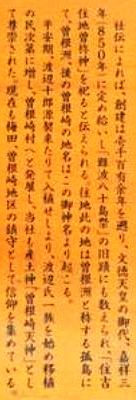 社伝によれば、創建は壱千百有余年を遡り、文徳天皇の御代、嘉祥三
年(850年)に定め給いし「難波八十島祭」の旧蹟にも数えられ、「住吉
住地曽根神」を祀ると伝えられる。往地此の地は曽根洲と称する孤島に
て、曽根洲、後の曽根崎の地名はこの御神名より起こる。
平安期、渡辺十郎源契来たりて入植せしより、渡辺氏一族を始め移植
の民次第に増し、曽根崎村へと発展し、当社も産土神「曽根崎天神」とし
て尊崇された。現在も梅田、曽根崎地区の鎮守として信仰を集めている。